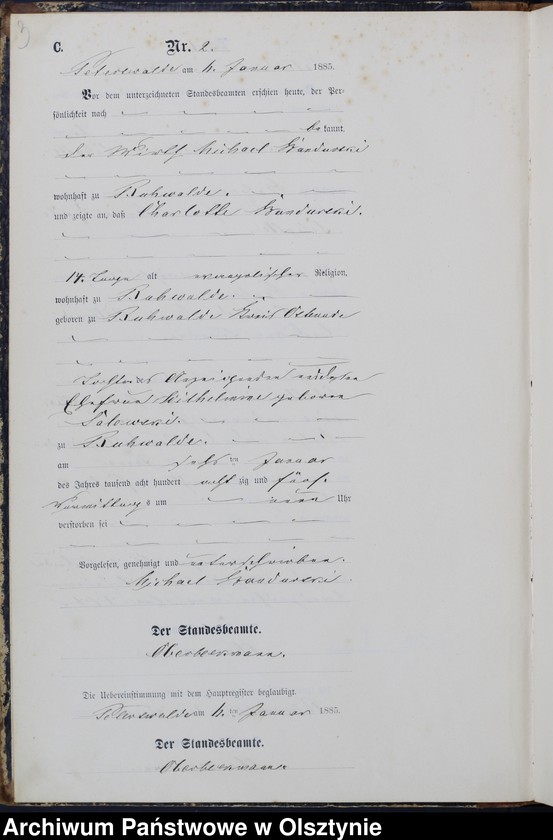 3
C. Nr. 2.
Peterswalde am Januar 1885.
Vor dem unterzeichneten Standesbeamten erschien heute, der Per-
sönlichkeit nach
bekannt
der Wirth Michael
wohnhaft zu Ruhwalde.
und zeigte an, daß Charlotte
14 Tage alt evangelischer Religion,
wohnhaft zu Ruhwalde.
geboren zu Ruhwalde Kreis Osterode
Tochter des Anzeigenden und dessen
Ehefrau Wilhelmine geboren
zu Ruhwalde.
am ten Januar
des Jahres tausend acht hundert acht zig und fünf
Vormittags um neun Uhr
verstorben sei
Vorgelesen, genehmigt und unterschrieben.
Michael
Der Standesbeamte.
Die Uebereinstimmung mit dem Hauptregister beglaubigt.
Peterswalde am ten Januar 1885.
Der Standesbeamte.
Archiwum Państwowe w Olsztynie